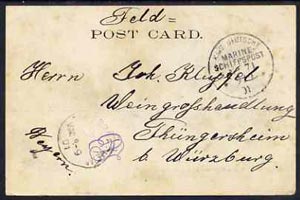 Feld=
POST CARD.
KAIS. DEUTSCHE
MARINE-
SCHIFFSPOST
Herrn Joh. Klüpfel
Weingroßhandlung
Thüngersheim
b. Würzburg.
Bayern.